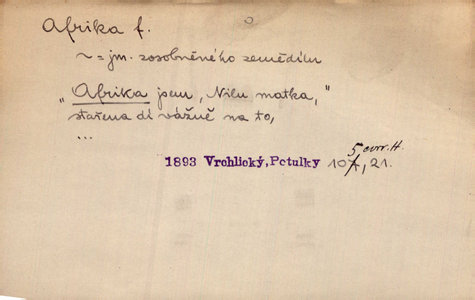 Afrika f.
~ = jm. zosobněného zemědílu
„Afrika jsem, Nilu matka,"
stařena dí vážně na to,
...
1893 Vrchlický, Petulky 105, 21.